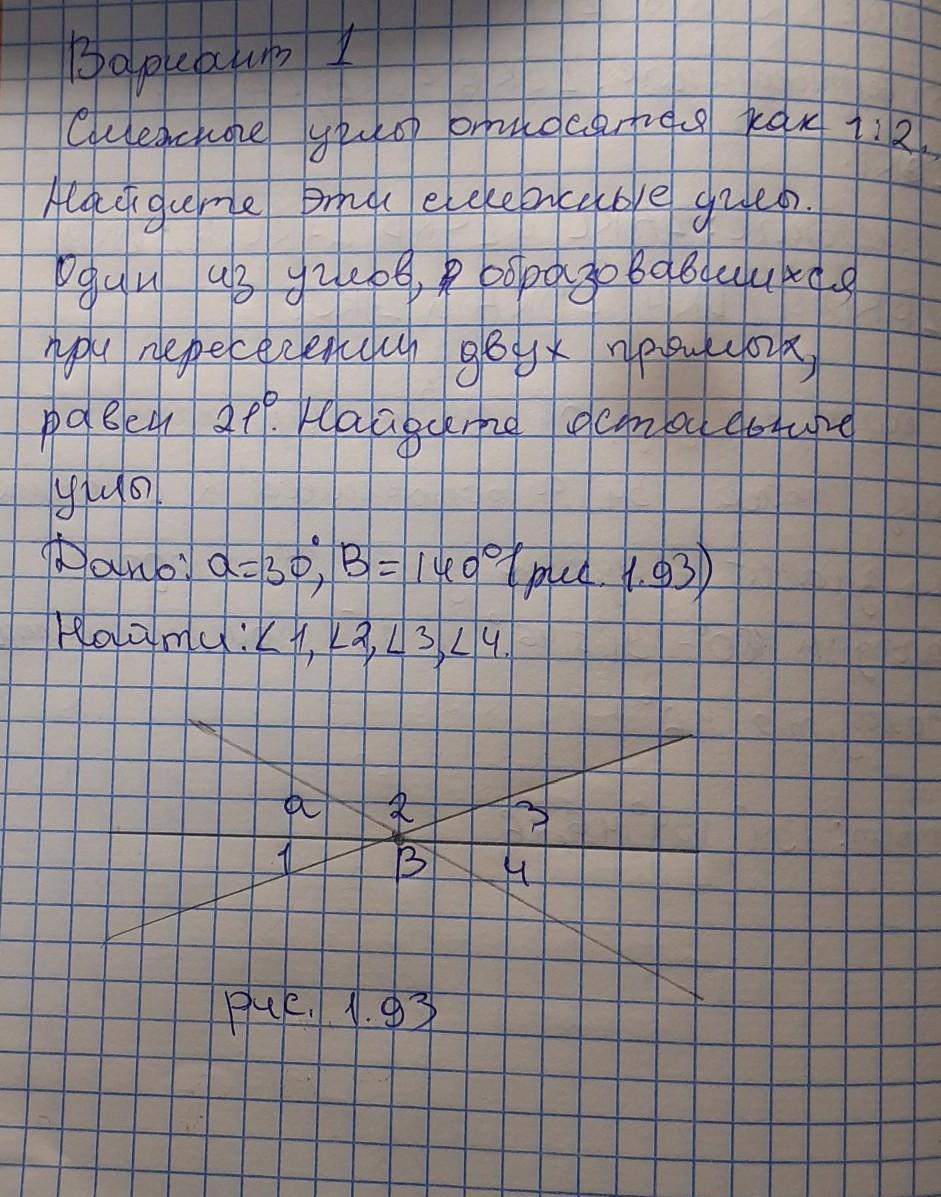 Вариант 1
Смежные углы относятся как 1:2.
Найдите эти смежные углы.
Один из углов, образовавшихся
при пересечении двух прямых,
равен 21°. Найдите остальные
углы.
Дано: a=30°, B=140° (рис. 1.93)
Найти: ∠1, ∠2, ∠3, ∠4.
a 2 3
1 B 4
рис. 1.93